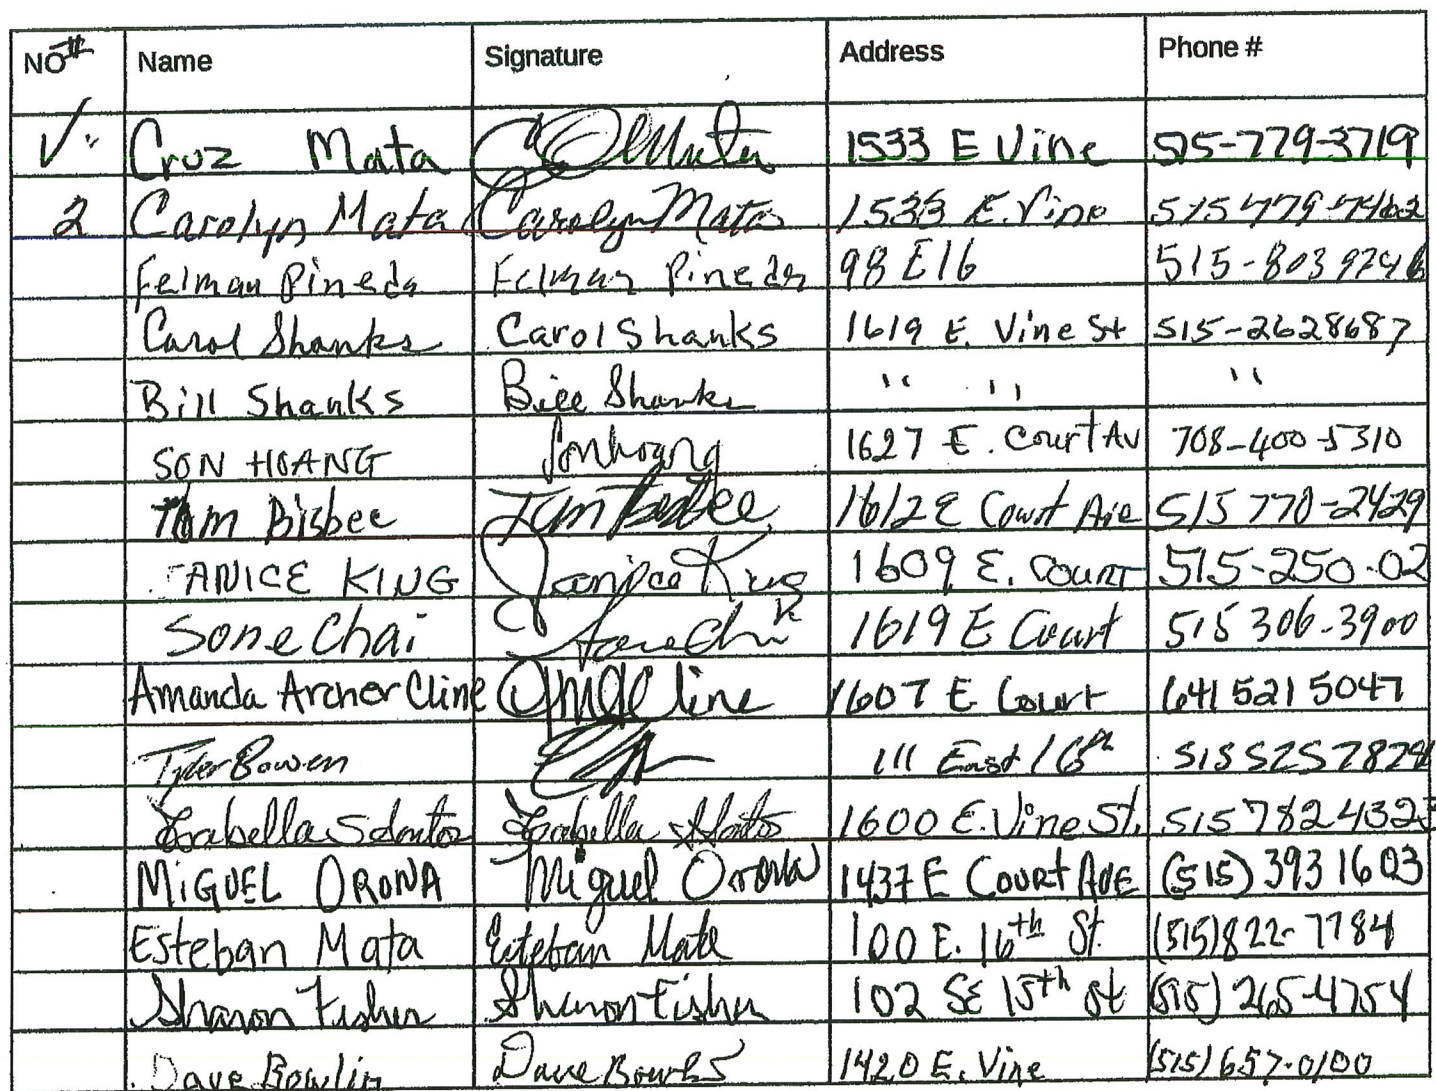 NO# Name Signature Address Phone #
✓. Cruz Mata Mata 1533 E Vine 515-779-3719
2 Carolyn Mata Carolyn Mata 1533 E. Vine 515 779
Felman Pineda Felman Pineda 98 E16 515-803
Carol Shanks Carol Shanks 1619 E. Vine St 515-2628687
Bill Shanks Bill Shanks " " "
SON HOANG Sonhoang 1627 E. Court Av 708-400-5310
Tom Bisbee Tom Bisbee 1612 E Court Ave 515 770-2429
JANICE KING Janice King 1609 E. COURT 515-250-02
Sone Chai 1619 E Court 515 306-3900
Amanda Archer Cline Cline 1607 E Court 641 521 5047
Tyler Bowen 111 East 16th 515
Isabella Isabella 1600 E. Vine St. 515 782 4323
MIGUEL ORONA Miguel Orona 1437 E COURT AVE (515) 393 1603
Esteban Mata Esteban Mata 100 E. 16th St. (515) 822-7784
Sharon Fisher Sharon Fisher 102 SE 15th St (515) 265-4754
Dave Bowlin Dave 1420 E. Vine (515) 657-0100